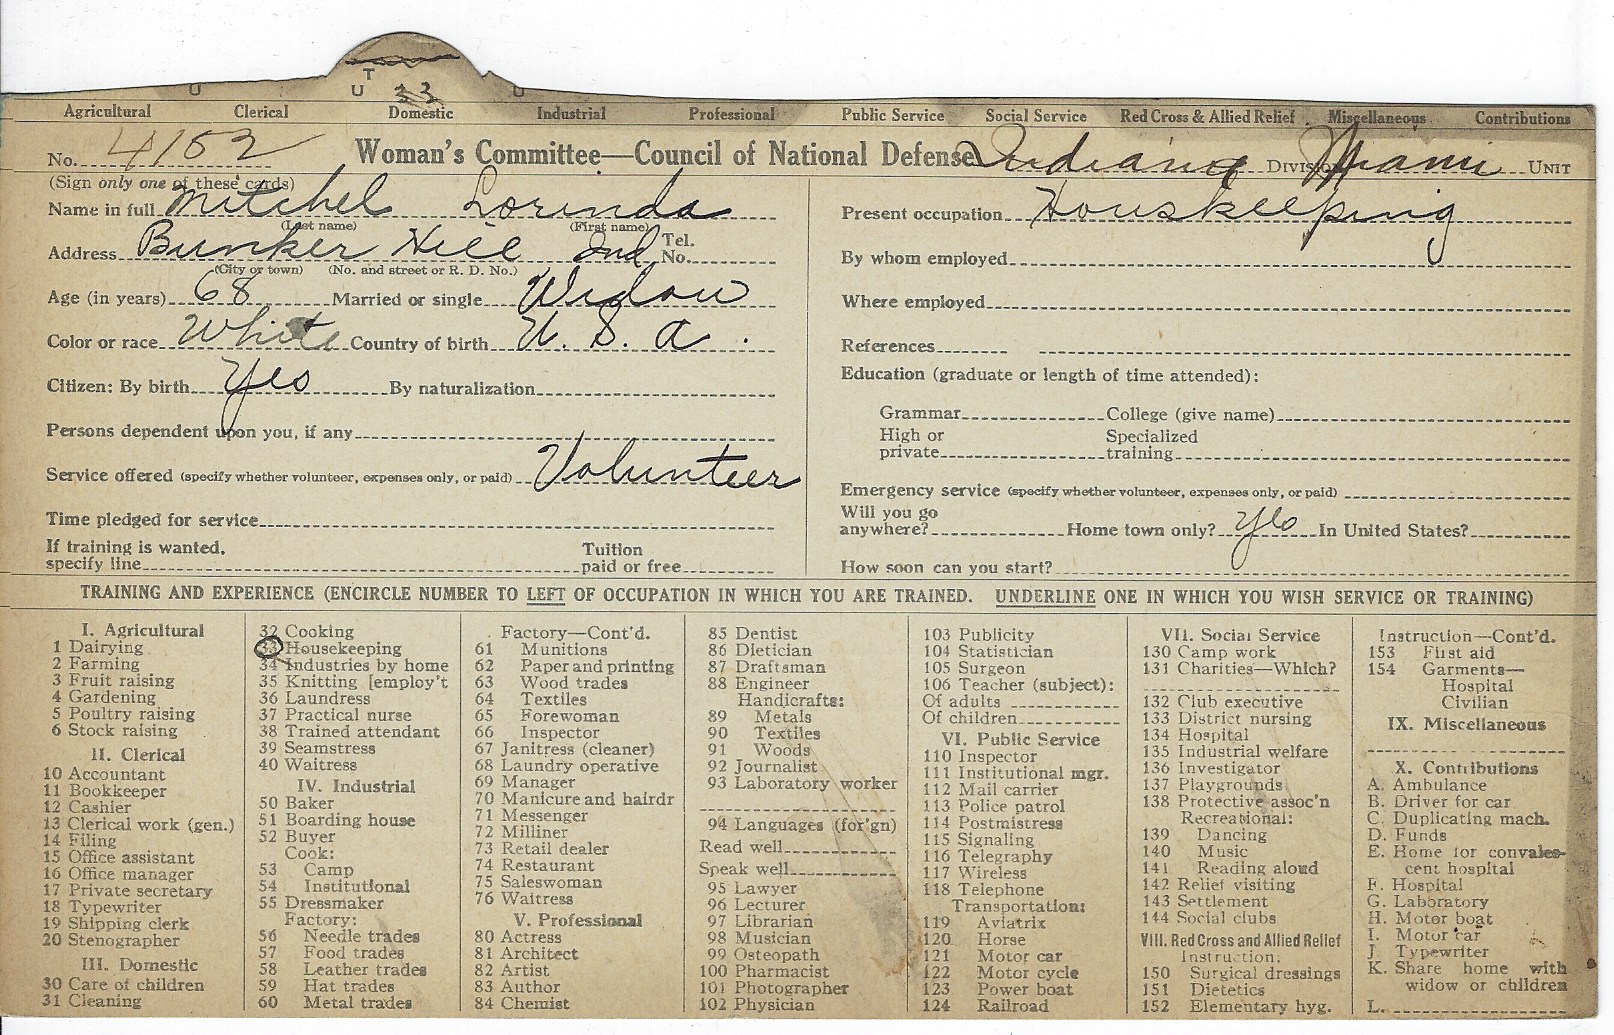 T
U 33
Agricultural Clerical Domestic Industrial Professional Public Service Social Service Red Cross & Allied Relief Miscellaneous Contributions
No. 4152 Woman's Committee—Council of National Defense Indiana Division Miami Unit
(Sign only one of these cards)
Name in full Mitchel Lorinda
(Last name) (First name)
Address Bunker Hill Ind Tel. No.
(City or town) (No. and street or R. D. No.)
Age (in years) 68 Married or single Widow
Color or race White Country of birth U. S. A.
Citizen: By birth Yes By naturalization
Persons dependent upon you, if any
Service offered (specify whether volunteer, expenses only, or paid) Volunteer
Time pledged for service
If training is wanted, specify line Tuition paid or free
Present occupation Houskeeping
By whom employed
Where employed
References
Education (graduate or length of time attended):
Grammar College (give name)
High or private Specialized training
Emergency service (specify whether volunteer, expenses only, or paid)
Will you go anywhere? Home town only? Yes In United States?
How soon can you start?
TRAINING AND EXPERIENCE (ENCIRCLE NUMBER TO LEFT OF OCCUPATION IN WHICH YOU ARE TRAINED. UNDERLINE ONE IN WHICH YOU WISH SERVICE OR TRAINING)
I. Agricultural
1 Dairying
2 Farming
3 Fruit raising
4 Gardening
5 Poultry raising
6 Stock raising
II. Clerical
10 Accountant
11 Bookkeeper
12 Cashier
13 Clerical work (gen.)
14 Filing
15 Office assistant
16 Office manager
17 Private secretary
18 Typewriter
19 Shipping clerk
20 Stenographer
III. Domestic
30 Care of children
31 Cleaning
32 Cooking
33 Housekeeping
34 Industries by home
35 Knitting [employ't
36 Laundress
37 Practical nurse
38 Trained attendant
39 Seamstress
40 Waitress
IV. Industrial
50 Baker
51 Boarding house
52 Buyer
Cook:
53 Camp
54 Institutional
55 Dressmaker
Factory:
56 Needle trades
57 Food trades
58 Leather trades
59 Hat trades
60 Metal trades
Factory—Cont'd.
61 Munitions
62 Paper and printing
63 Wood trades
64 Textiles
65 Forewoman
66 Inspector
67 Janitress (cleaner)
68 Laundry operative
69 Manager
70 Manicure and hairdr
71 Messenger
72 Milliner
73 Retail dealer
74 Restaurant
75 Saleswoman
76 Waitress
V. Professional
80 Actress
81 Architect
82 Artist
83 Author
84 Chemist
85 Dentist
86 Dietician
87 Draftsman
88 Engineer
Handicrafts:
89 Metals
90 Textiles
91 Woods
92 Journalist
93 Laboratory worker
94 Languages (for'gn)
Read well
Speak well
95 Lawyer
96 Lecturer
97 Librarian
98 Musician
99 Osteopath
100 Pharmacist
101 Photographer
102 Physician
103 Publicity
104 Statistician
105 Surgeon
106 Teacher (subject):
Of adults
Of children
VI. Public Service
110 Inspector
111 Institutional mgr.
112 Mail carrier
113 Police patrol
114 Postmistress
115 Signaling
116 Telegraphy
117 Wireless
118 Telephone
Transportation:
119 Aviatrix
120 Horse
121 Motor car
122 Motor cycle
123 Power boat
124 Railroad
VII. Social Service
130 Camp work
131 Charities—Which?
132 Club executive
133 District nursing
134 Hospital
135 Industrial welfare
136 Investigator
137 Playgrounds
138 Protective assoc'n
Recreational:
139 Dancing
140 Music
141 Reading aloud
142 Relief visiting
143 Settlement
144 Social clubs
VIII. Red Cross and Allied Relief
Instruction:
150 Surgical dressings
151 Dietetics
152 Elementary hyg.
Instruction—Cont'd.
153 First aid
154 Garments—
Hospital
Civilian
IX. Miscellaneous
X. Contributions
A. Ambulance
B. Driver for car
C. Duplicating mach.
D. Funds
E. Home for convales-
cent hospital
F. Hospital
G. Laboratory
H. Motor boat
I. Motor car
J. Typewriter
K. Share home with
widow or children
L.